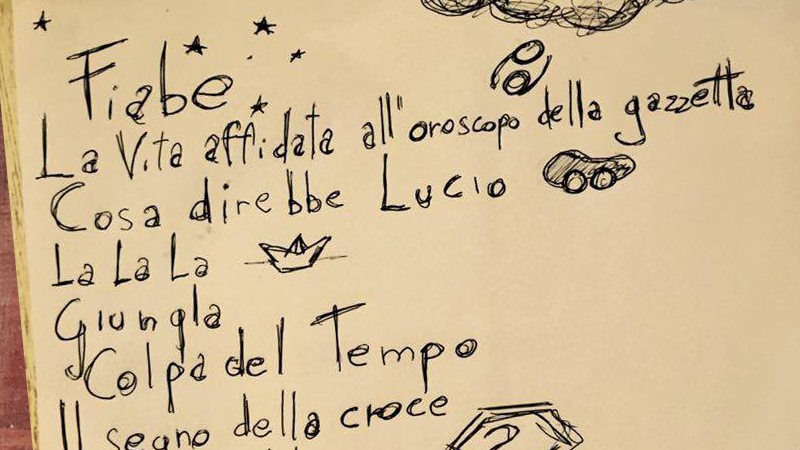 Fiabe
La Vita affidata all'oroscopo della gazzetta
Cosa direbbe Lucio
La La La
Giungla
Colpa del Tempo
Il segno della croce
?